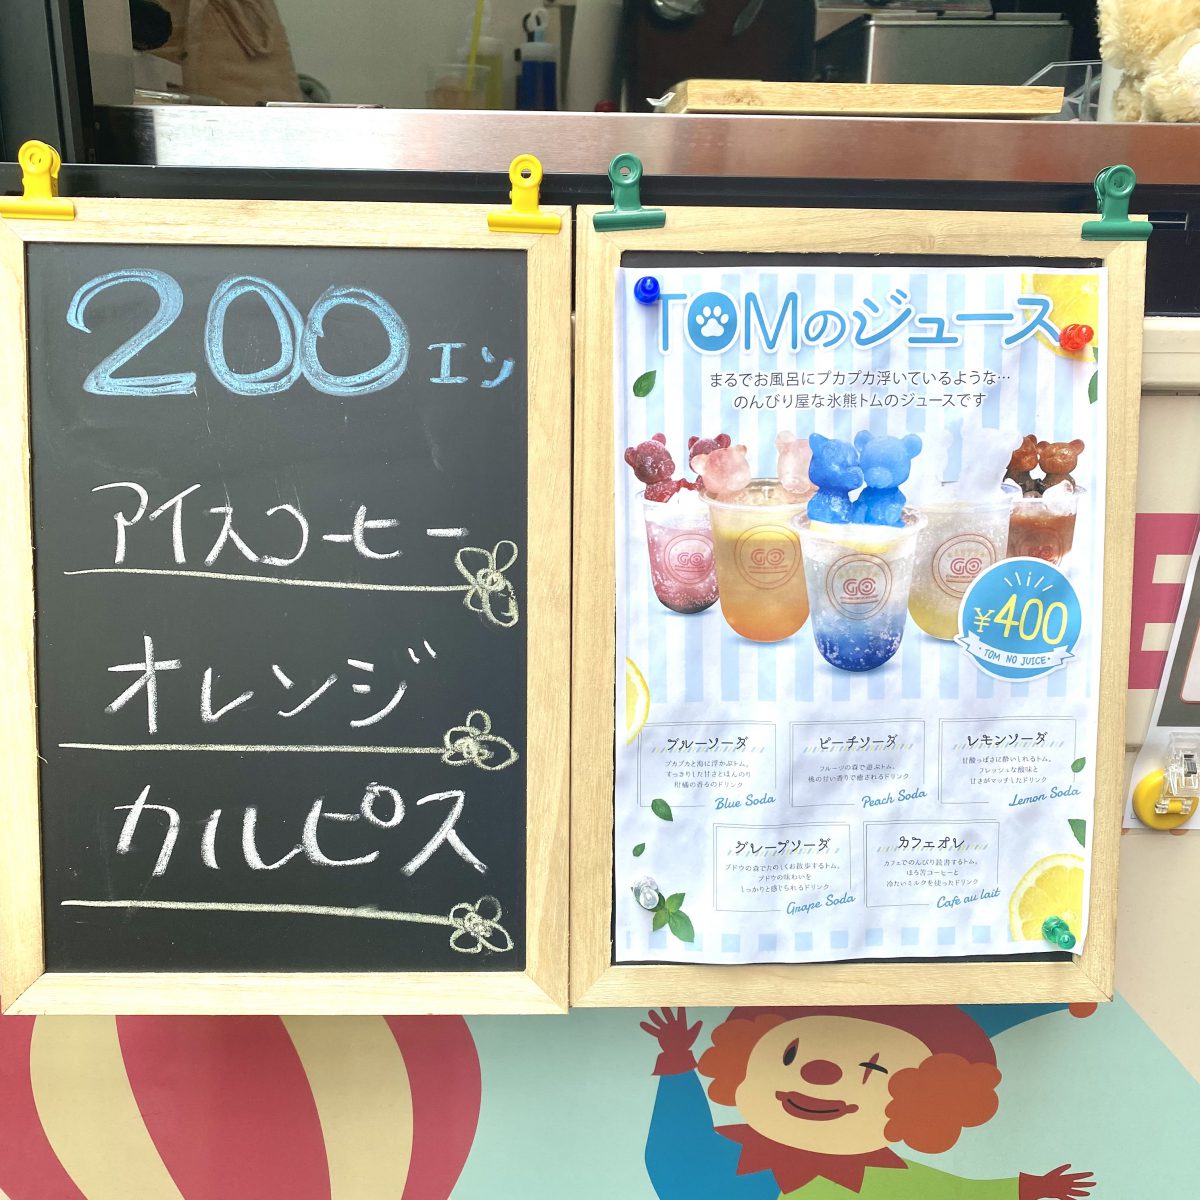 200エン
アイスコーヒー
オレンジ
カルピス
TOMのジュース
まるでお風呂にプカプカ浮いているような…
のんびり屋な氷熊トムのジュースです
GO
GO
GO
GO
GO
¥400
・TOM NO JUICE・
ブルーソーダ
プカプカと海に浮かぶトム。
すっきりした甘さとほんのり
柑橘の香るのドリンク
Blue Soda
ピーチソーダ
フルーツの森で遊ぶトム。
桃の甘い香りで癒されるドリンク
Peach Soda
レモンソーダ
甘酸っぱさに酔いしれるトム。
フレッシュな酸味と
甘さがマッチしたドリンク
Lemon Soda
グレープソーダ
ブドウの森でたのしくお散歩するトム。
ブドウの味わいを
しっかりと感じられるドリンク
Grape Soda
カフェオレ
カフェでのんびり読書するトム。
ほろ苦コーヒーと
冷たいミルクを使ったドリンク
Cafe au lait
E